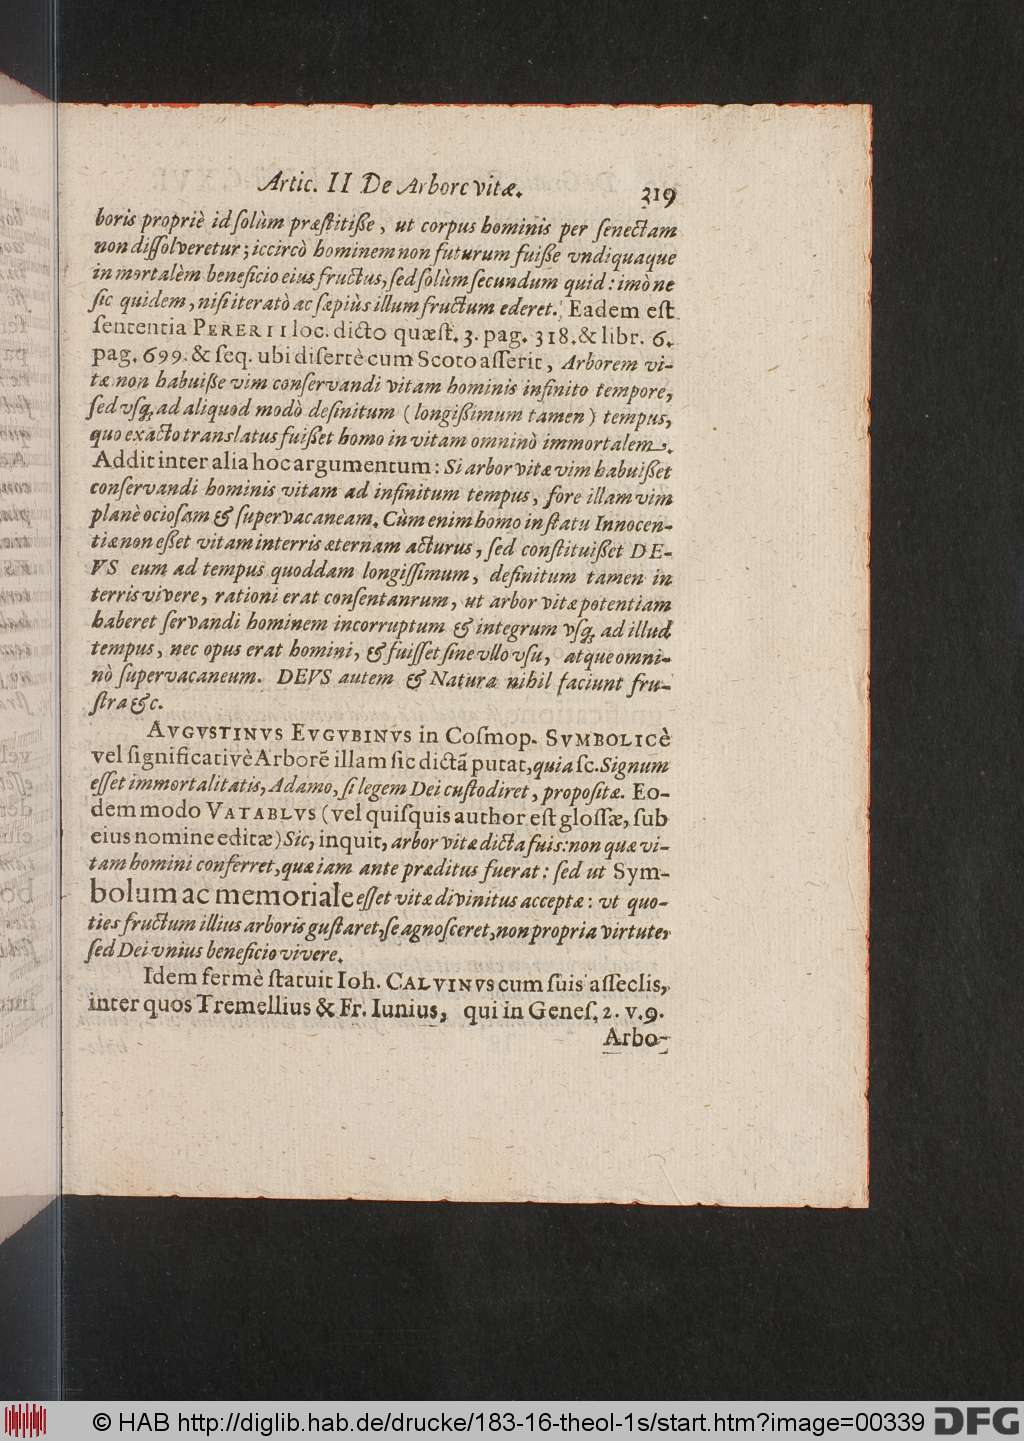 Artic. II De Arbore vitæ. 319
boris propriè id ſolùm præſtitiſſe, ut corpus hominis per ſenectam
non diſſolveretur; iccircò hominem non futurum fuiſſe vndiquaque
inmortalèm beneficio eius fructus, ſed ſolùm ſecundum quid: imò ne
ſic quidem, niſi iteratò ac ſæpiùs illum fructum ederet. Eadem eſt
ſententia PERERII loc. dicto quæſt. 3. pag. 318. & libr. 6.
pag. 699. & ſeq. ubi diſertè cum Scoto aſſerit, Arborem vi-
tæ non habuiſſe vim conſervandi vitam hominis infinito tempore,
ſed vſq; ad aliquod modò definitum (longiſſimum tamen) tempus,
quo exacto translatus fuiſſet homo in vitam omninò immortalem.
Addit inter alia hoc argumentum: Si arbor vitæ vim habuiſſet
conſervandi hominis vitam ad infinitum tempus, fore illam vim
planè ocioſam & ſupervacaneam. Cùm enim homo in ſtatu Innocen-
tiæ non eſſet vitam in terris æternam acturus, ſed conſtituiſſet DE-
VS eum ad tempus quoddam longiſſimum, definitum tamen in
terris vivere, rationi erat conſentanrum, ut arbor vitæ potentiam
haberet ſervandi hominem incorruptum & integrum vſq; ad illud
tempus, nec opus erat homini, & fuiſſet ſine vllo vſu, atque omni-
nò ſupervacaneum. DEVS autem & Natura nihil faciunt fru-
ſtra &c.
AVGVSTINVS EVGVBINVS in Coſmop. SVMBOLICè
vel ſignificativè Arborē illam ſic dictā putat, quia ſc. Signum
eſſet immortalitatis, Adamo, ſi legem Dei cuſtodiret, propoſitæ. Eo-
dem modo VATABLVS (vel quiſquis author eſt gloſſæ, ſub
eius nomine editæ) Sic, inquit, arbor vitæ dicta fuis: non quæ vi-
tam homini conferret, quæ iam ante præditus fuerat: ſed ut Sym-
bolum ac memoriale eſſet vitæ divinitus acceptæ: vt quo-
ties fructum illius arboris guſtaret, ſe agnoſceret, non propria virtute,
ſed Dei vnius beneficio vivere.
Idem fermè ſtatuit Ioh. CALVINVS cum ſuis aſſeclis,
inter quos Tremellius & Fr. Iunius, qui in Geneſ, 2. v. 9.
Arbo-
© HAB http://diglib.hab.de/drucke/183-16-theol-1s/start.htm?image=00339 DFG